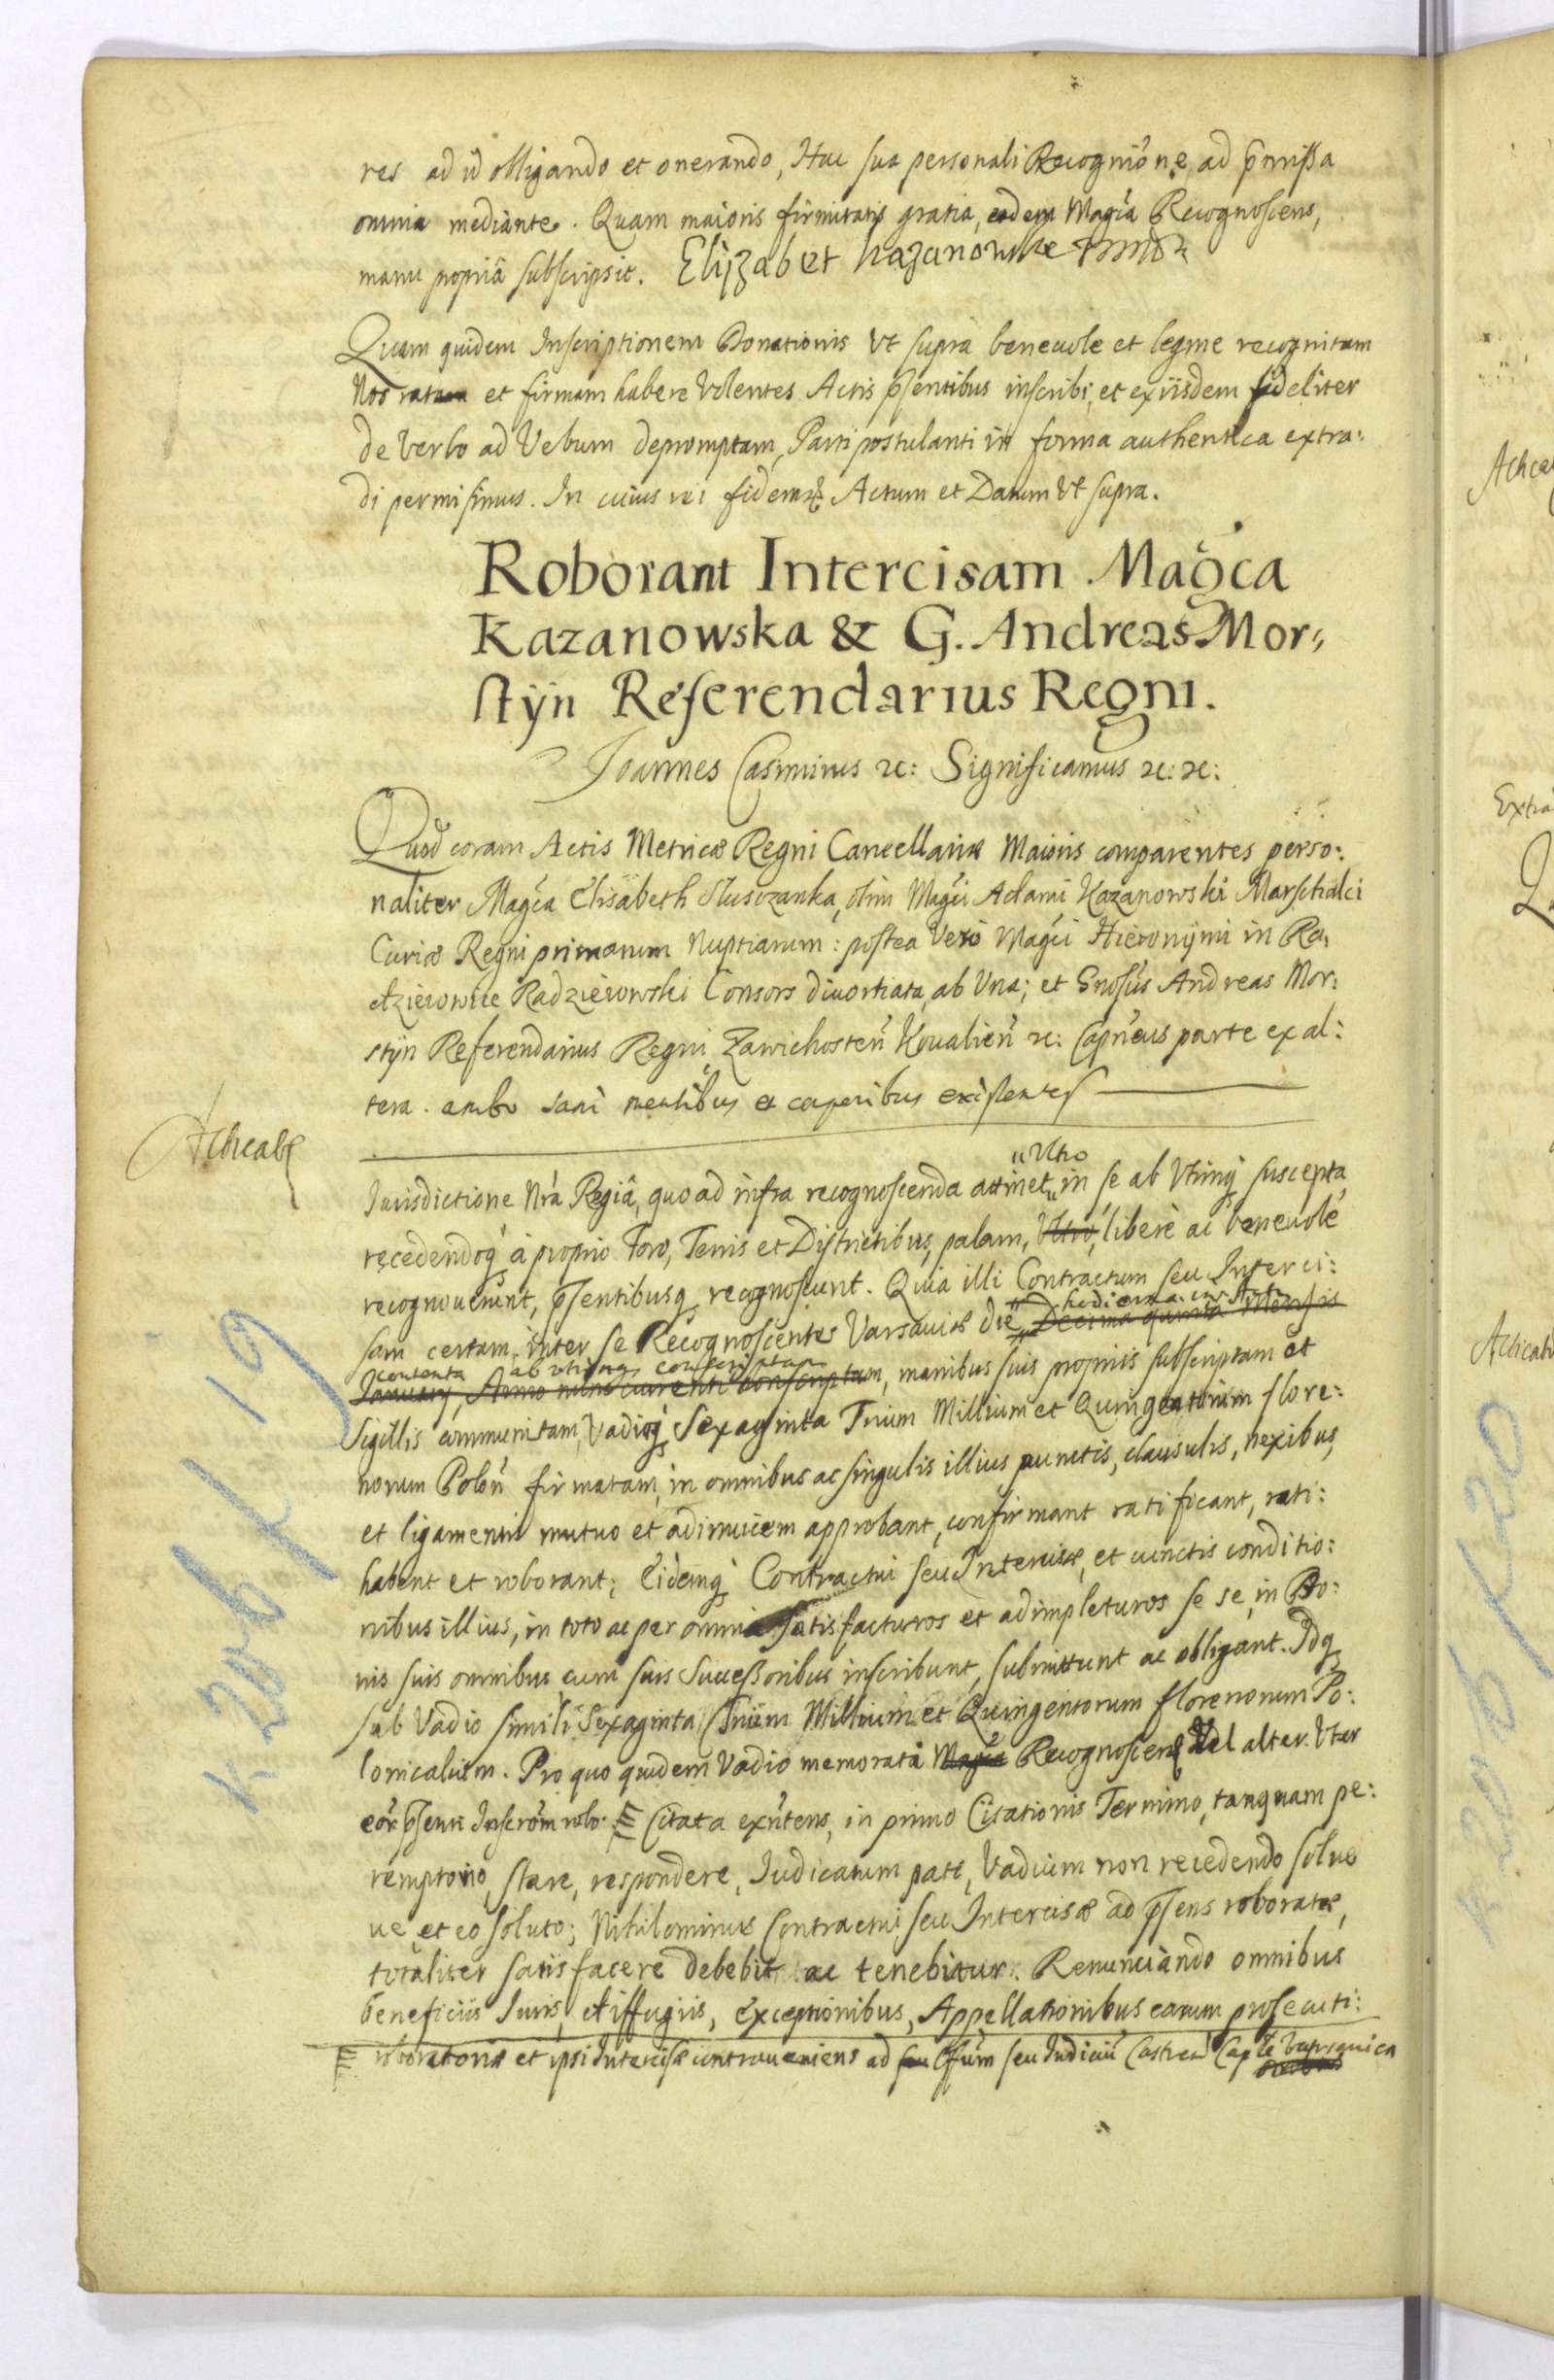 res ad id obligando et onerando, Hac sua personali Recognióne ad p̃missa
omnia mediante. Quam maioris firmitatis gratia, eadem Magća Recognoscens,
manu propriâ subscripsit. Elizabet Kazanowska
Quam quidem Inscriptionem Donationis Vt supra beneuole et legme recognitam
Nos ratam et firmam habere Volentes Actis p̃sentibus inscribi, et ex iisdem fideliter
de Verbo ad Vebum depromptam, Parti postulanti in forma authentica extra:
di permisimus. In cuius rei fidem &c Actum et Datum Vt supra.
Roborant Intercisam Magća
Kazanowska & G. Andreas Mor,,
styn Referendarius Regni.
Joannes Casimirus &c: Significamus &c: &c:
Quod coram Actis Metricæ Regni Cancellariæ Maioris comparentes perso:
naliter Magća Elisabeth Sluszczanka, olim Magći Adami Kazanowski Marschalci
Curiæ Regni primarum Nuptiarum: postea Vero Magći Hieronymi in Ra:
dzieiowice Radzieiowski Consors diuortiata, ab Vna; et Gnosús Andreas Mor:
styn Referendarius Regni, Zawichosteñ Koualień &c: Capńeus parte ex al:
tera. ambo sani mentibus et corporibus existentes
Acticats
Iurisdictione Nrá Regiâ, quo ad infra recognoscenda attinet „Vltro in se ab Vtrinq́ suscepta,
recedendoq́ à proprio foro, Terris et Districtibus, palam, Vltro, liberè ac beneuolè
recognouerunt, p̃sentibusq́ recognoscunt. Quia illi Contractum seu Interci:
sam certam inter se Recognoscentes Varsauiæ die „hodierna in Arce Decima quinta Mensis
contenta ab utrinq conscriptam
January, Anno nunc currenti conscriptam, manibus suis proprijs subscriptam et
Sigillis communitam, Vadioq́ Sexaginta Trium Millium et Quingentorum flore:
norum Poloń firmatam, in omnibus ac singulis illius punctis, clausulis, nexibus,
et ligamentis mutuo et adinuicem approbant, confirmant ratificant, rati:
habent et roborant; Eidemq́ Contractui seu Intercisæ, et cunctis conditio:
nibus illius, in toto ac per omnia satisfacturos et adimpleturos se se, in Bo:
nis suis omnibus cum suis Successoribus inscribunt, submittunt ac obligant. Idq́
sub Vadio simili Sexaginta Trium Millium et Quingentorum florenorum Po:
lonicalium. Pro quo quidem Vadio memorata Magća Recognoscens Vel alter Vter
eor̃ p̃sentis Inscrőm robo: Citata exńtens, in primo Citationis Termino, tanquam pe:
remptorio, stare, respondere, Iudicatum pati, Vadium non recedendo solue
ue, et eo soluto; Nihilominus Contractui seu Intercisæ ad p̃sens roboratæ,
totaliter satisfacere debebit ac tenebitur. Renunciando omnibus
beneficiis Iuris, diffugiis, exceptionibus, Appellationibus earum prosecuti:
roboratoriæ et ipsi Intercisæ contraueniens ad seu Offum seu Iudiciũ Castreń Caple Varsauien
K 206 K 19
K 205 K 20